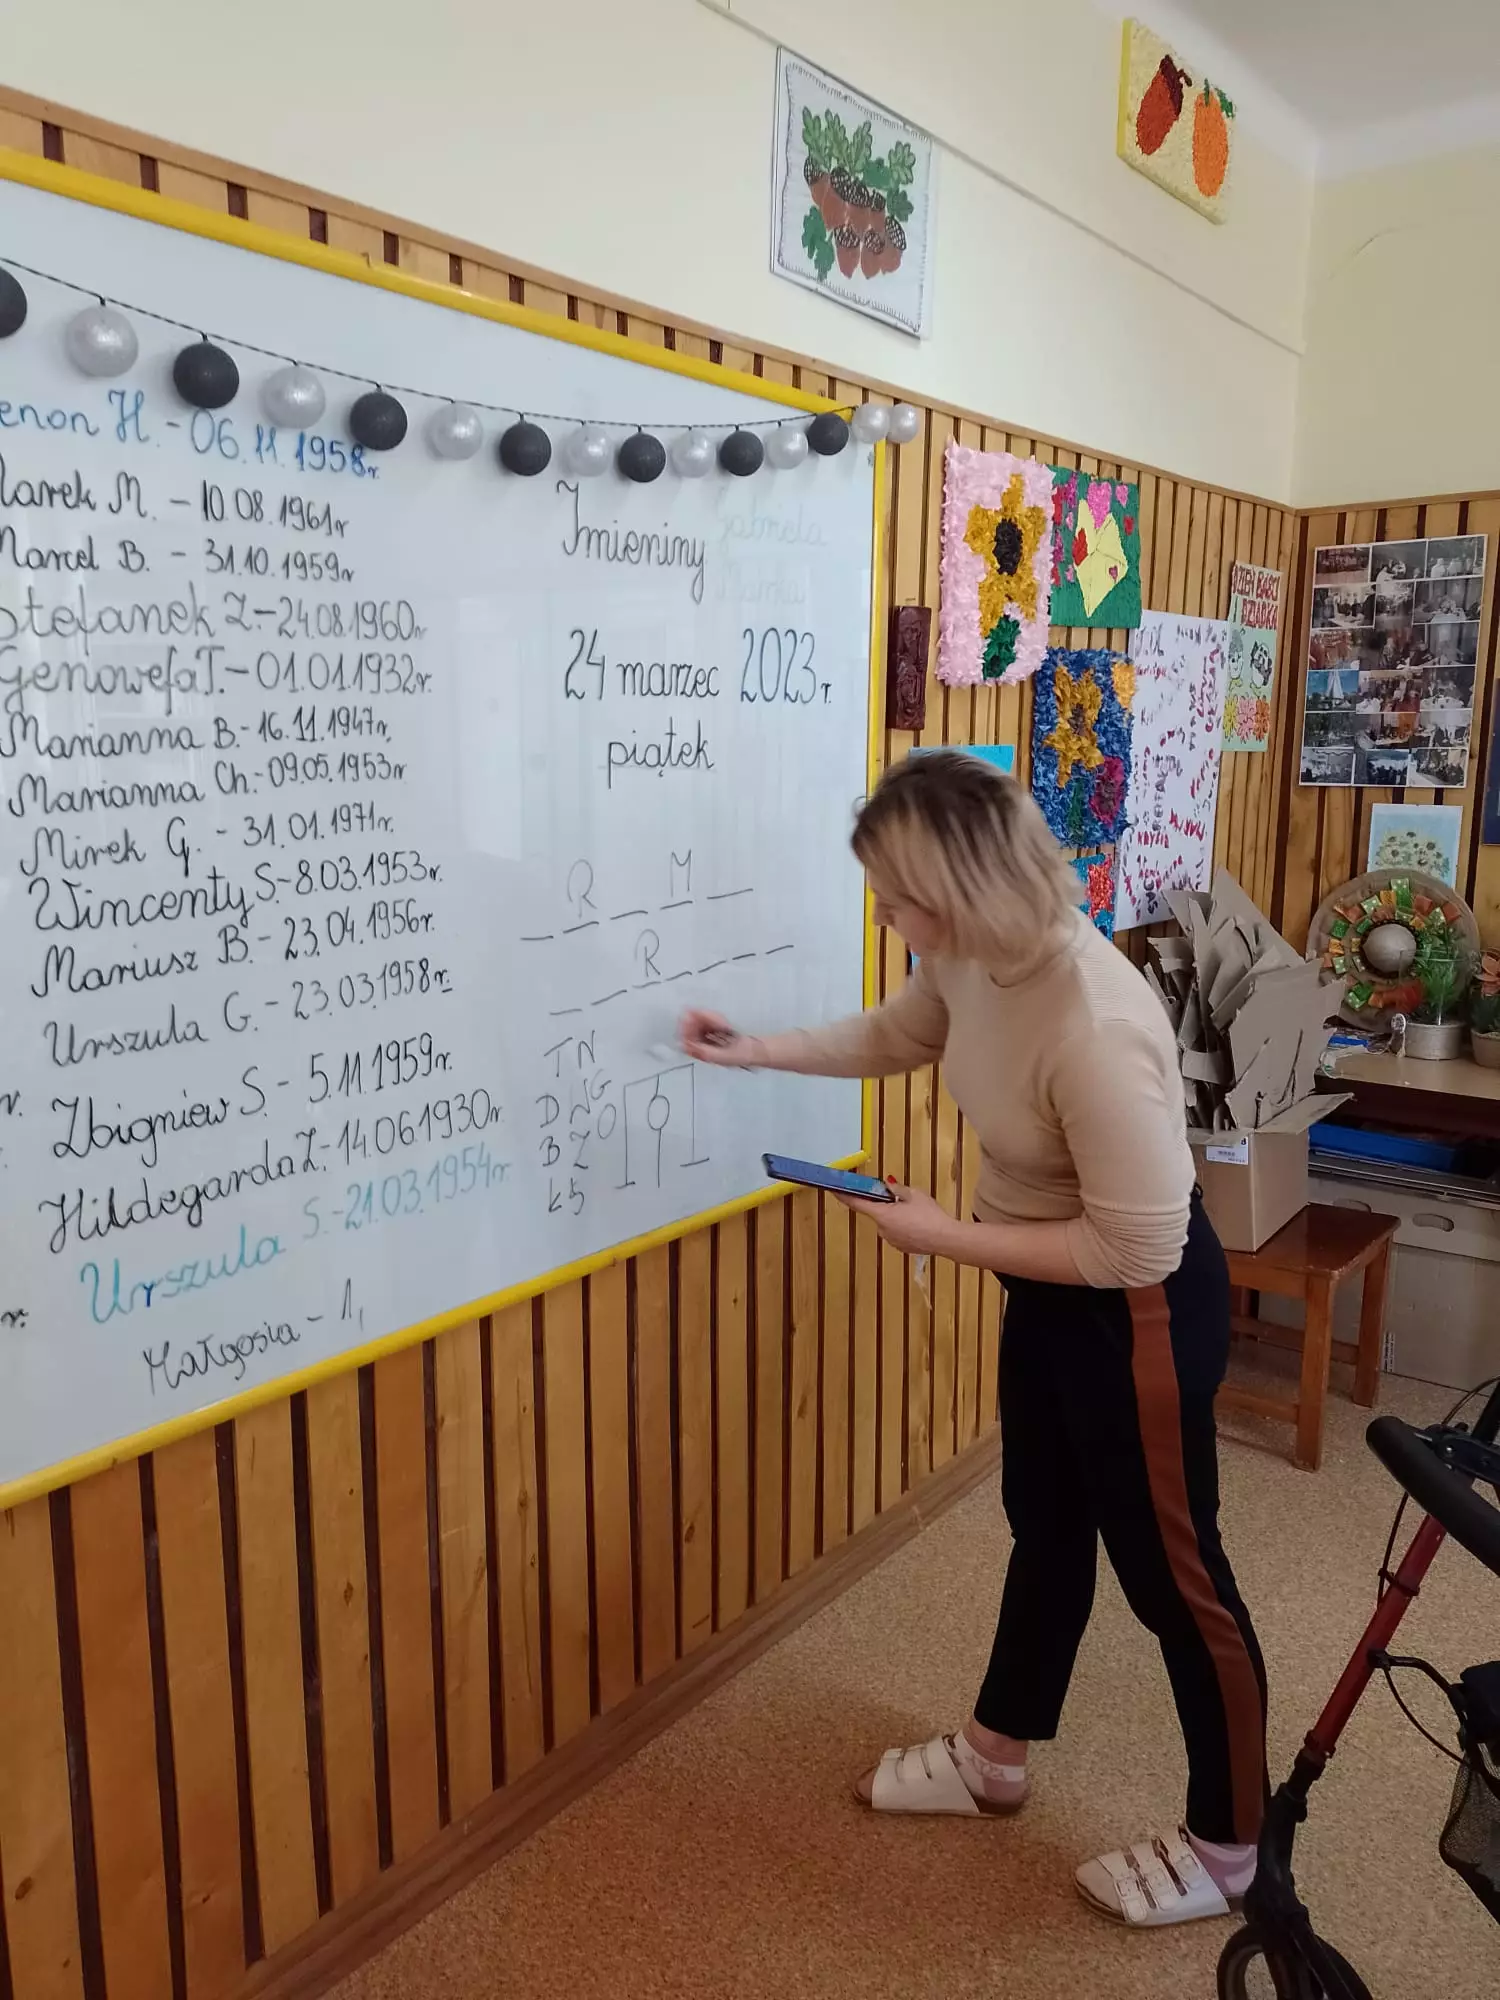 enon H. - 06.11.1958r.
Marek M. - 10.08.1961r
Marcel B. - 31.10.1959r
Stefanek Z. - 24.08.1960r
Genowefa T. - 01.01.1932r.
Marianna B. - 16.11.1947r.
Marianna Ch. - 09.05.1953r
Mirek G. - 31.01.1971r.
Wincenty S. - 8.03.1953r.
Mariusz B. - 23.04.1956r.
Urszula G. - 23.03.1958r.
Zbigniew S. - 5.11.1959r.
Hildegarda Z. - 14.06.1930r.
Urszula S. - 21.03.1954r.
Małgosia - 1,
r.
Imieniny Gabriela
Marka
24 marzec 2023r.
piątek
_ R _ M _
_ _ R _ _ _
T N
D N G
B Z O
Ł S
DZIEŃ BABCI
I DZIADKA